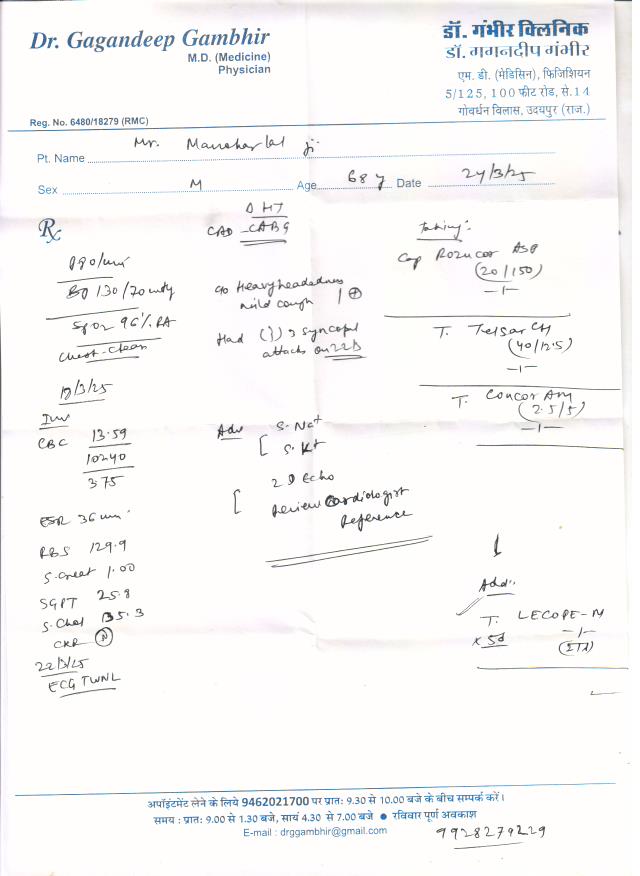 Dr. Gagandeep Gambhir
M.D. (Medicine)
Physician
Reg. No. 6480/18279 (RMC)
डॉ. गंभीर क्लिनिक
डॉ. गगनदीप गंभीर
एम. डी. (मेडिसिन), फिजिशियन
5/125, 100 फीट रोड, से.14
गोवर्धन विलास, उदयपुर (राज.)
Pt. Name Mr. Manohar lal ji
Sex M Age 68 y Date 24/3/25
Rx
HT
CAD - CABG
P 90/min
BP 130/70 mmHg
SpO2 96% RA
Chest - Clear
c/o Heavyheadedness
mild cough
Had syncopal
attacks on 22/3
Taking:
Cap Rozucor ASP
(20/150)
-1-
T. Telsar CH
(40/12.5)
-1-
T. Concor Am
(2.5/5)
-1-
19/3/25
Inv
CBC 13.59
10240
375
ESR 36 mm
RBS 129.9
S. Creat 1.00
SGPT 25.8
S. Chol 135.3
CXR N
22/3/25
ECG TWNL
Adv S. Na+
S. K+
2 D Echo
Review Cardiologist
Reference
Add:
T. LECOPE-M
-1-
x 5d
अपॉइंटमेंट लेने के लिये 9462021700 पर प्रातः 9.30 से 10.00 बजे के बीच सम्पर्क करें।
समय : प्रातः 9.00 से 1.30 बजे, सायं 4.30 से 7.00 बजे ● रविवार पूर्ण अवकाश
E-mail : drggambhir@gmail.com
9928279229